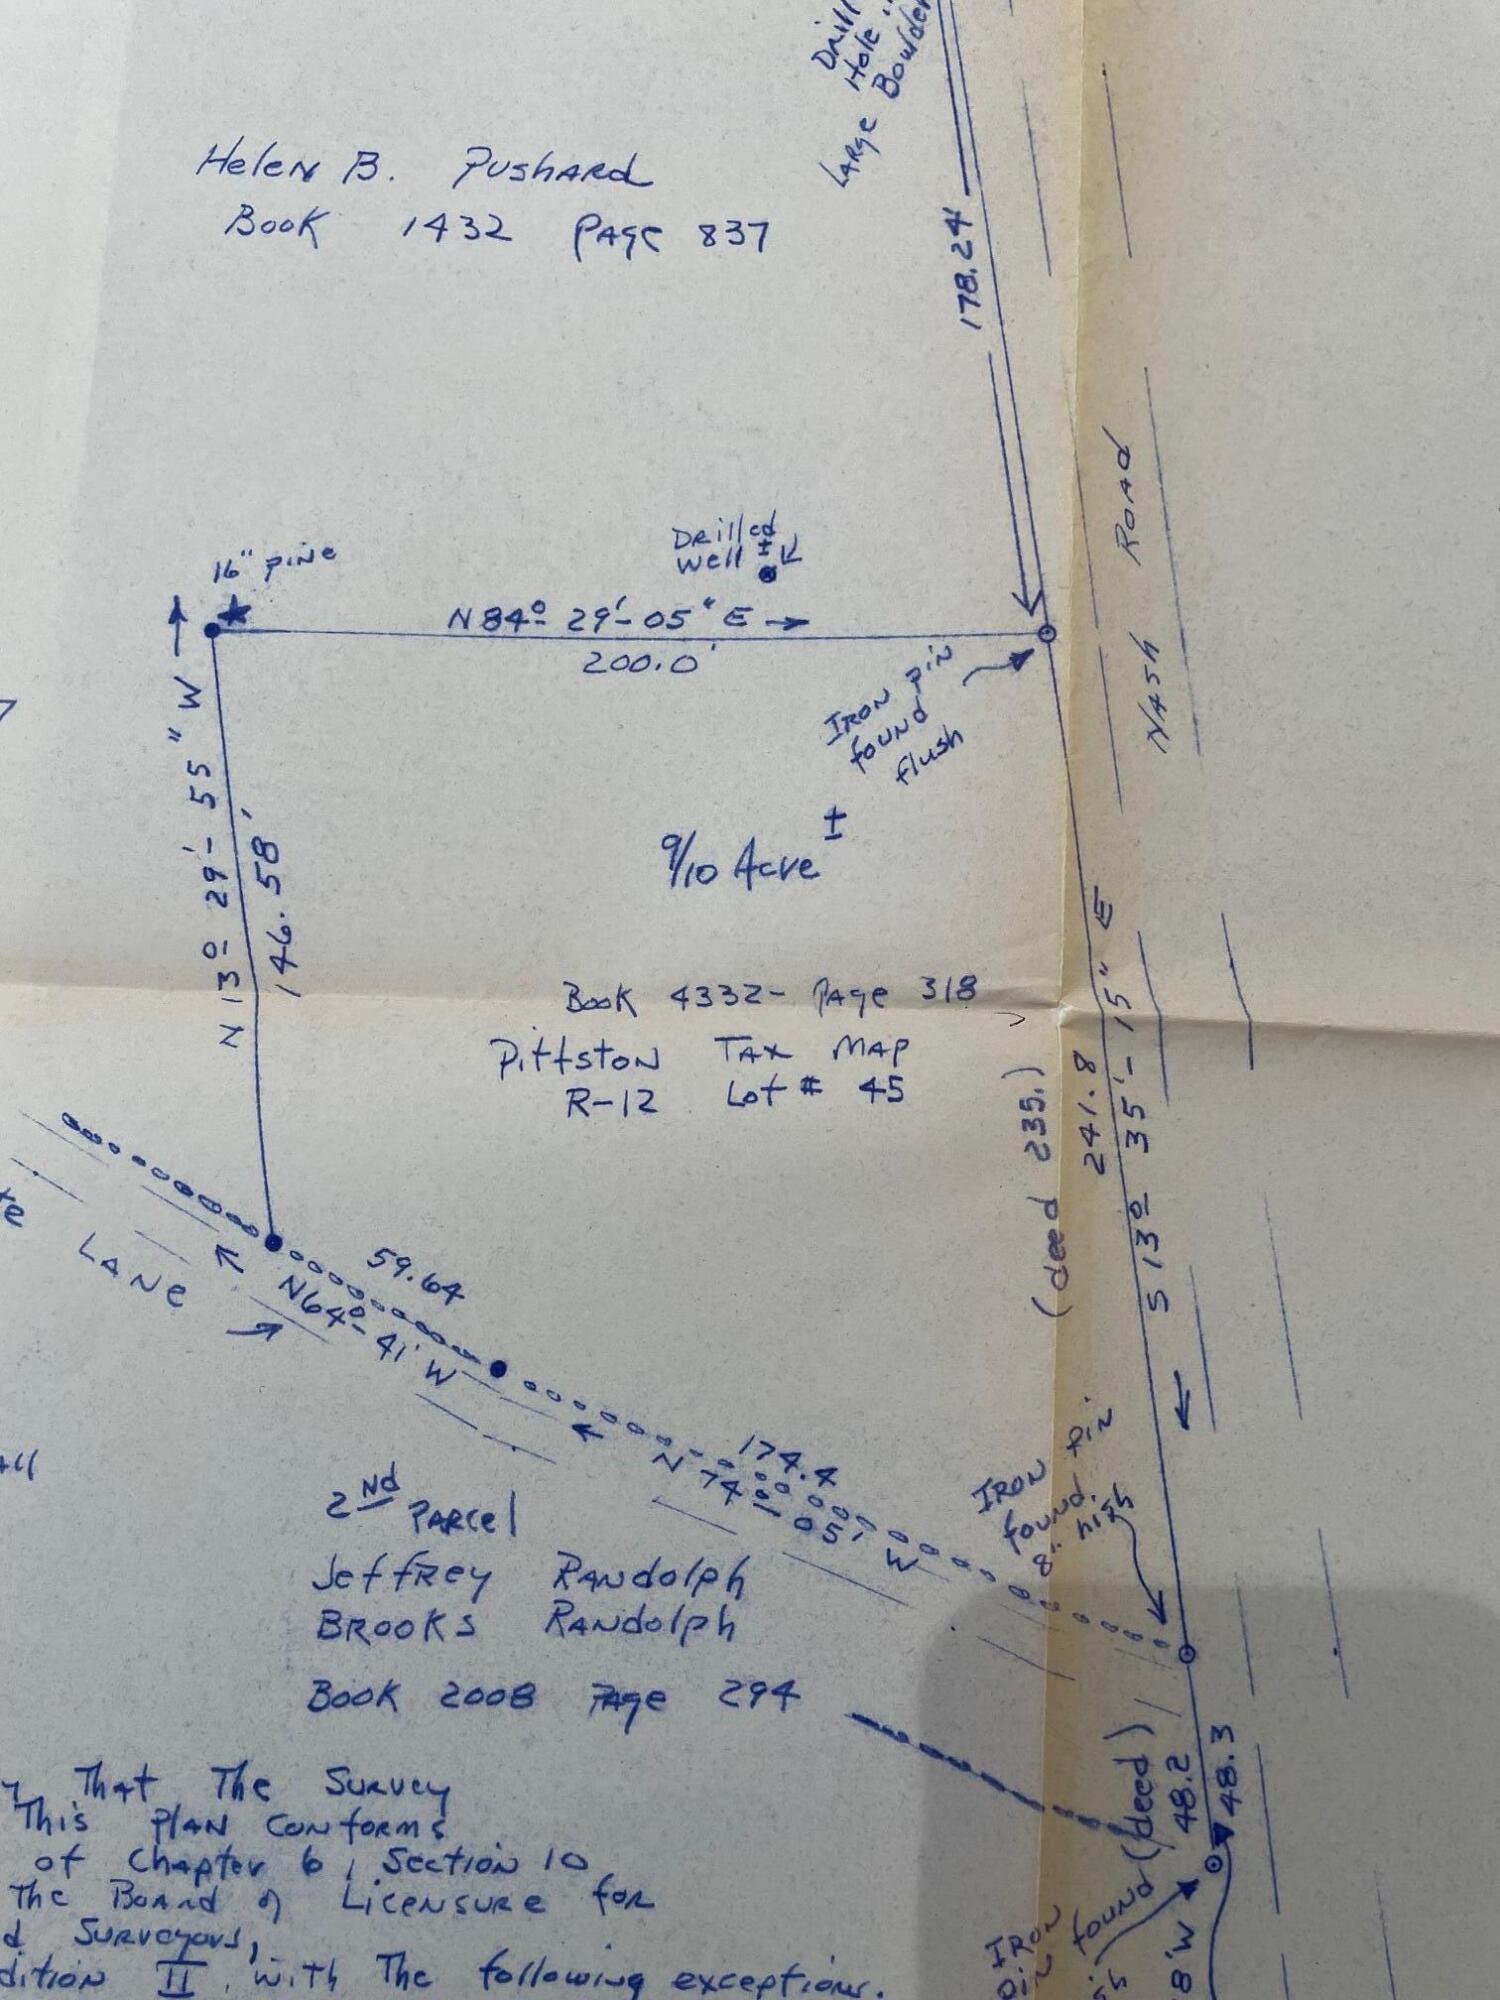 Drill
Hole
Large Boulder
Helen B. Pushard
Book 1432 Page 837
178.24'
Nash Road
16" pine
Drilled
Well ±
N 84º 29'- 05" E
200.0'
Iron pin
found
flush
N 13º 29'- 55" W
146.58'
9/10 Acre ±
Book 4332- Page 318
Pittston Tax Map
R-12 Lot # 45
(deed 235.)
241.8
S 13º 35'- 15" E
Lane
59.64
N64º- 41' W
174.4
N 74º- 05' W
Iron pin
found
8" high
2nd Parcel
Jeffrey Randolph
Brooks Randolph
Book 2008 Page 294
(deed)
48.2
48.3
That The Survey
This Plan Conforms
of Chapter 6, Section 10
The Board of Licensure for
Surveyors,
II with The following exceptions.
Iron
pin found
8'W